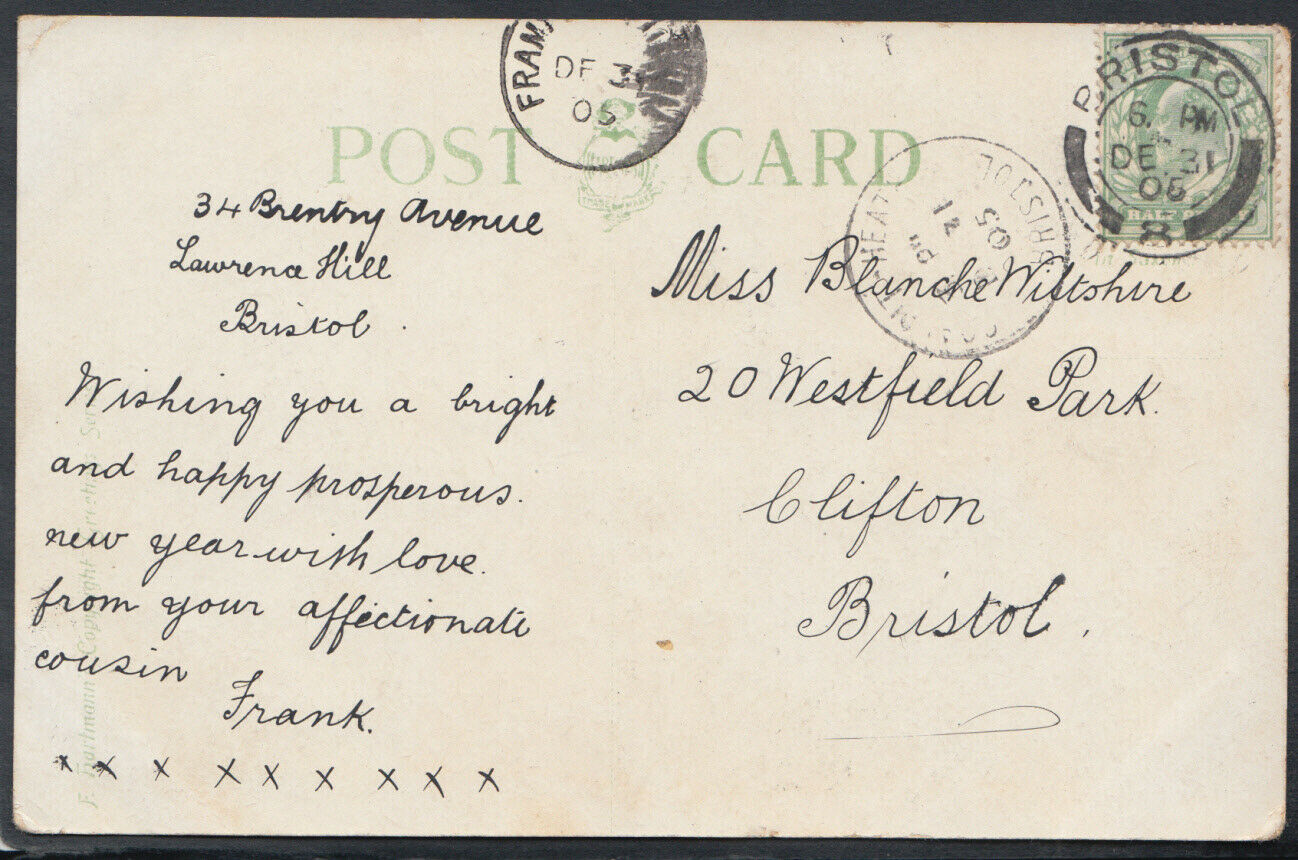 POST CARD
FRAM
DE 31
05
BRISTOL
6. PM
DE 31
05
8
HALF
BRISTOL
05
34 Brentry Avenue
Lawrence Hill
Bristol.
Wishing you a bright
and happy prosperous.
new year with love.
from your affectionate
cousin
Frank.
x x x x x x x x x
Miss Blanche Wiltshire
20 Westfield Park.
Clifton
Bristol.
F. Hartmann Copyright